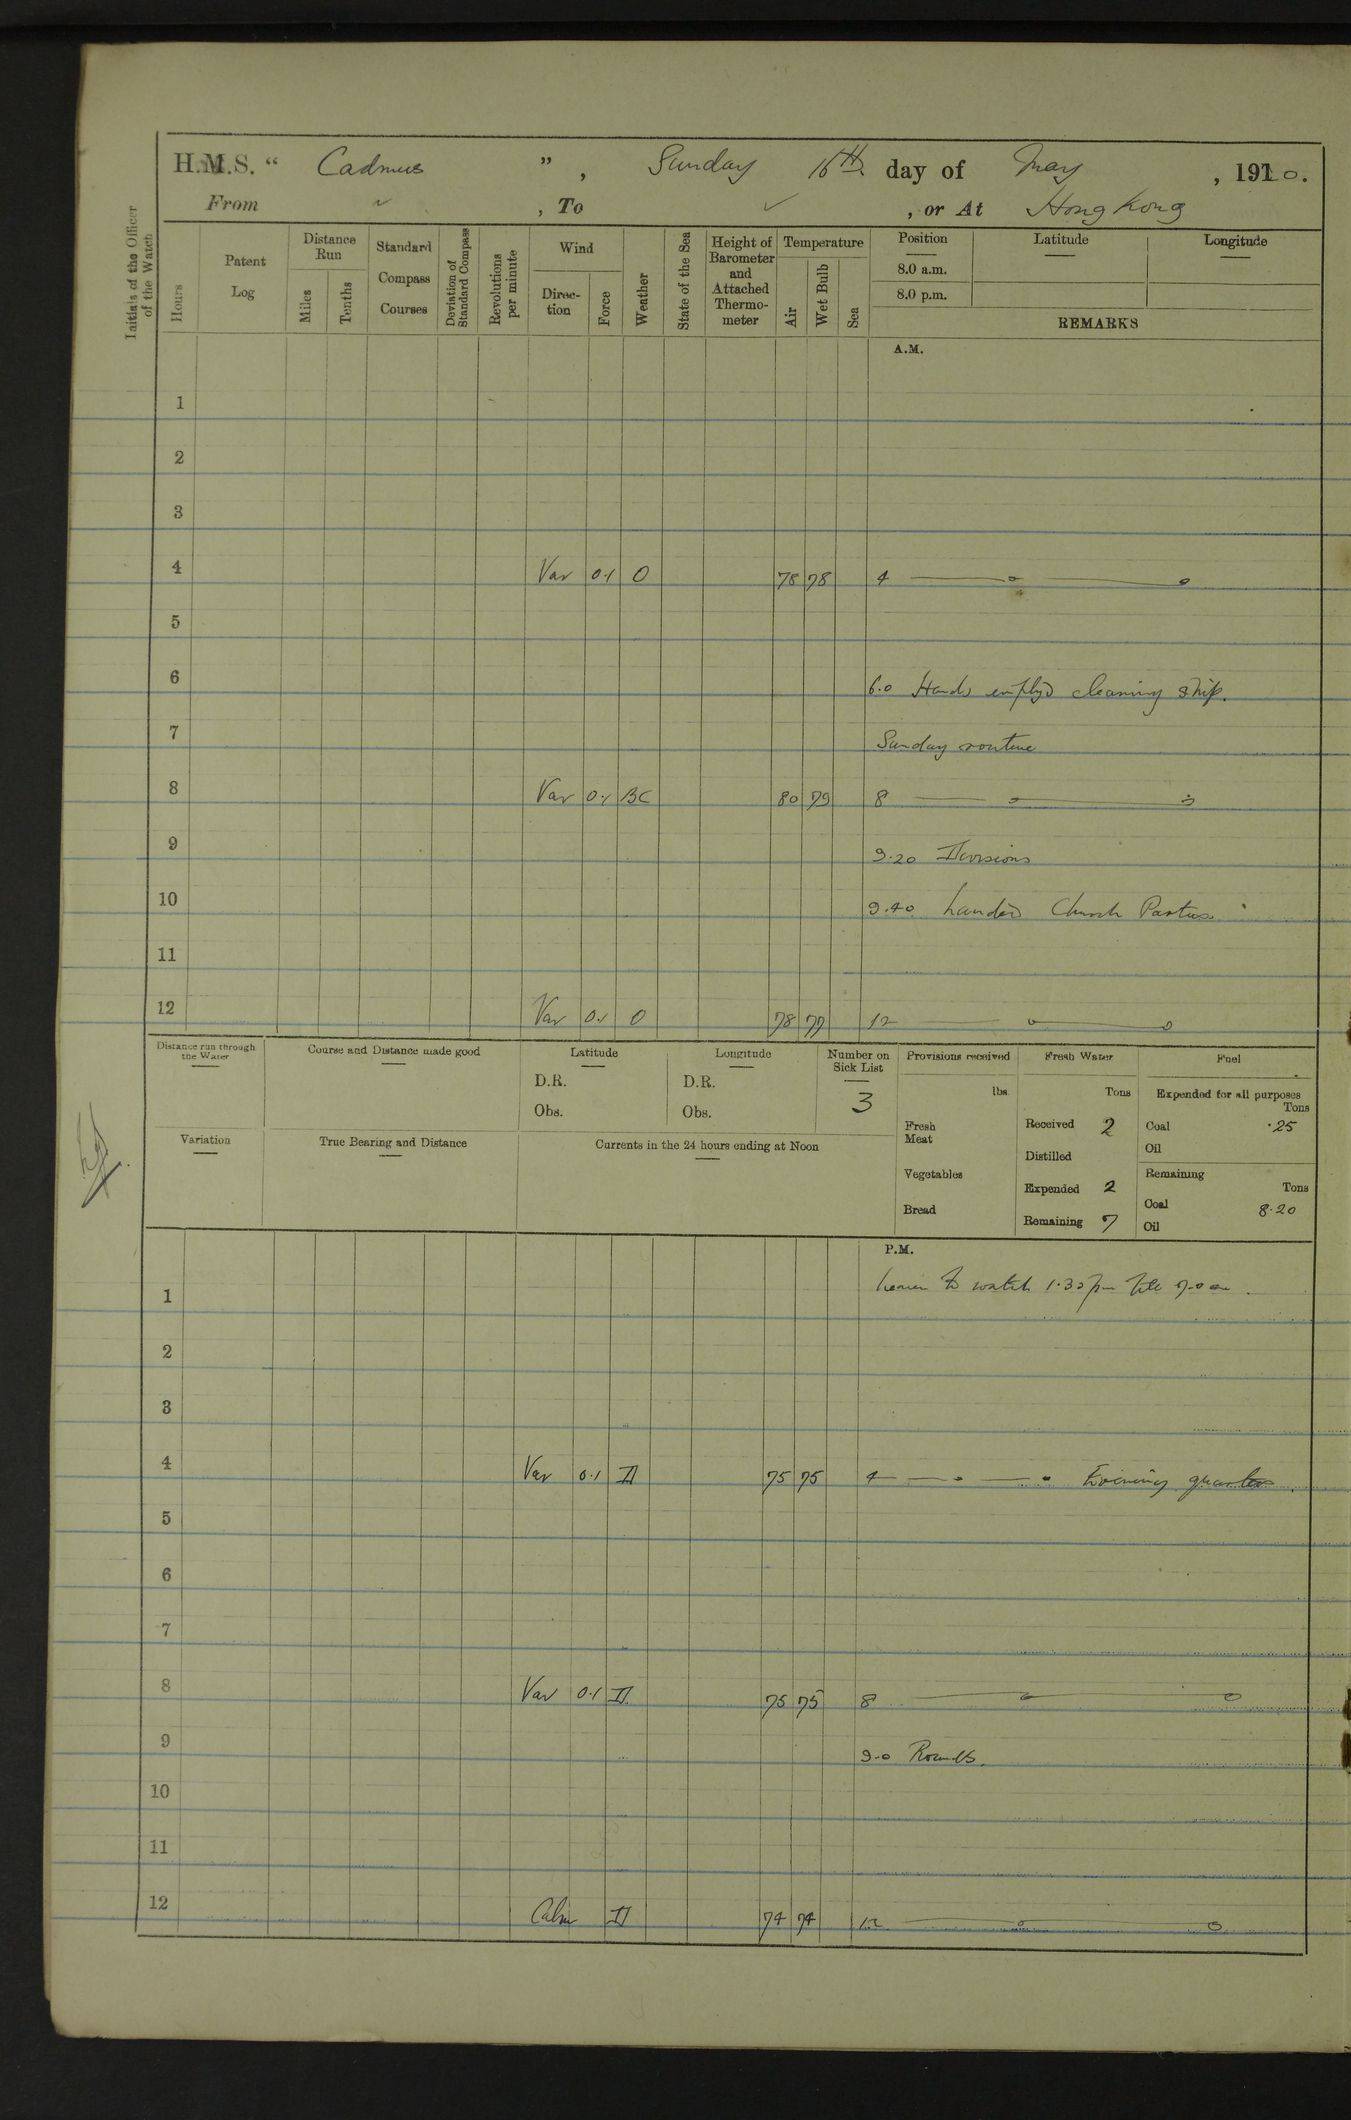 H.M.S. “ Cadmus ”, Sunday 16th day of May, 1920.
From ✓ , To ✓ , or At Hong Kong
Initials of the Officer of the Watch
Hours
Patent Log
Distance Run
Miles
Tenths
Standard Compass Courses
Deviation of Standard Compass
Revolutions per minute
Wind
Direc-tion
Force
Weather
State of the Sea
Height of Barometer and Attached Thermo-meter
Temperature
Air
Wet Bulb
Sea
Position
8.0 a.m.
8.0 p.m.
Latitude
Longitude
REMARKS
A.M.
1
2
3
4 Var 0.1 O 78 78 4
5
6 6.0 Hands emplyd cleaning ship.
7 Sunday routine
8 Var 0.1 BC 80 79 8
9 9.20 Divisions
10 9.40 Landed Church Parties.
11
12 Var 0.1 O 78 77 12
Distance run through the Water
Course and Distance made good
Latitude
D.R.
Obs.
Longitude
D.R.
Obs.
Number on Sick List
3
Provisions received
lbs
Fresh Meat
Vegetables
Bread
Fresh Water
Tons
Received 2
Distilled
Expended 2
Remaining 7
Fuel
Expended for all purposes
Tons
Coal .25
Oil
Remaining
Tons
Coal 8.20
Oil
Variation
True Bearing and Distance
Currents in the 24 hours ending at Noon
P.M.
1 to watch 1.30 pm till 7.0 am.
2
3
4 Var 0.1 D 75 75 4 Evening quarters.
5
6
7
8 Var 0.1 D 75 75 8
9 9.0 Rounds.
10
11
12 Calm D 74 74 12